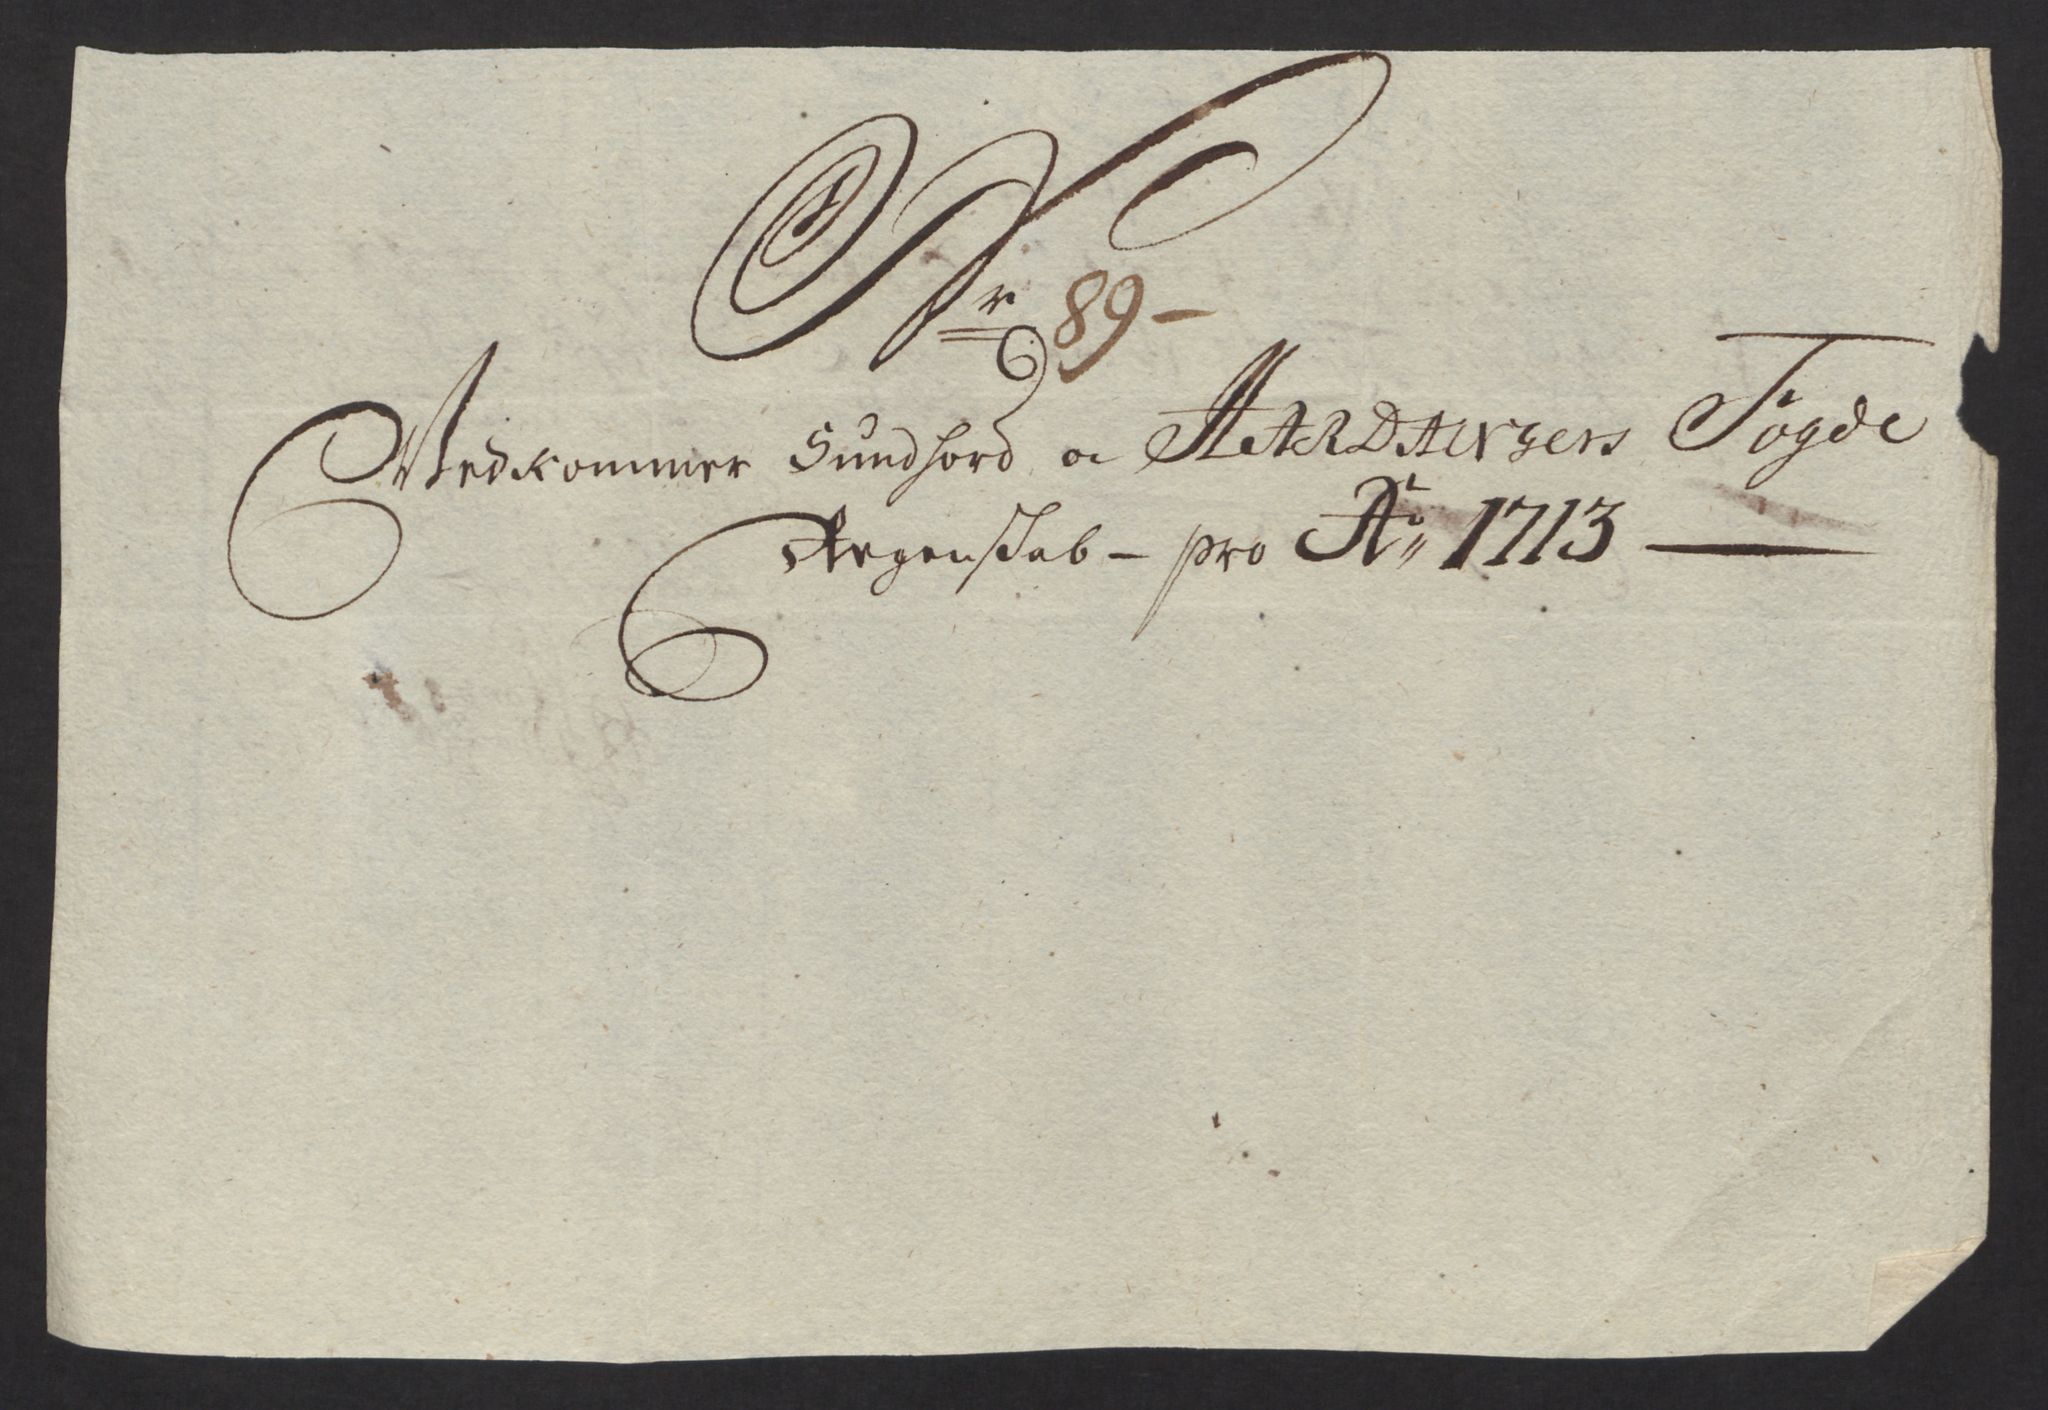 Nr 89 -
Vedkommer Sundhord oc HARDANgers Fogde
Regenskab - pro Ao 1713